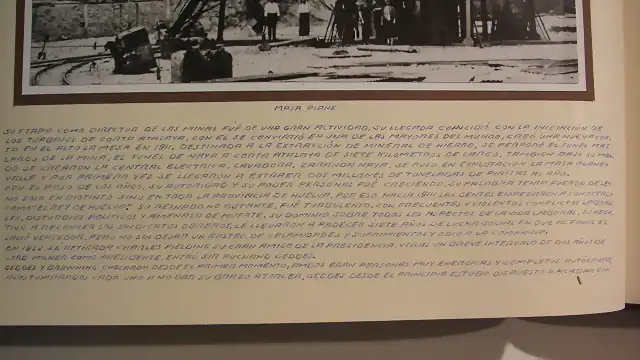 MASA PLANE
SU ETAPA COMO DIRECTOR DE LAS MINAS FUÉ DE UNA GRAN ACTIVIDAD, SU LLEGADA COINCIDIÓ CON LA INICIACIÓN DE
LOS TRABAJOS DE CORTA ATALAYA, CON EL SE CONVIRTIÓ EN UNA DE LAS MAYORES DEL MUNDO, CREÓ UNA NUEVA COR
TA EN EL ALTO LA MESA EN 1911, DESTINADA A LA EXTRACCIÓN DE MINERAL DE HIERRO, SE PERFORÓ EL TUNEL MAS
LARGO DE LA MINA, EL TUNEL DE NAYA A CORTA ATALAYA DE SIETE KILOMETROS DE LARGO, TAMBIEN BAJO SU MAN
DO SE CREARON LA CENTRAL ELECTRICA, LAVADORA, CENTRAL NAYA, SE PUSO EN EXPLOTACIÓN LA MASA PLANES
VALLE Y POR PRIMERA VEZ SE LLEGARON A EXTRAER DOS MILLONES DE TONELADAS DE PIRITAS AL AÑO.
CON EL PASO DE LOS AÑOS, SU AUTORIDAD Y SU PODER PERSONAL FUÉ CRECIENDO, SU PALABRA TENIA FUERZA DE LEY
NO SOLO EN RIOTINTO SINO EN TODA LA PROVINCIA DE HUELVA, FUE POR HACIA 1911 LAS GENTES EMPEZARON A CONOCERLO
COMO "EL REY DE HUELVA". SU REINADO, NO OBSTANTE, FUÉ TURBULENTO, CON FRECUENTES Y VIOLENTOS CONFLICTOS LABORA
LES, DISTURBIOS POLITICOS Y AMENAZAS DE MUERTE, SU DOMINIO SOBRE TODOS LOS ASPECTOS DE LA VIDA LABORAL, SU NEGA
TIVA A RECONOCER LOS SINDICATOS OBREROS, LE LLEVARON A PADECER SIETE AÑOS DE LUCHA SOCIAL EN QUE AL FINAL EL
SALIÓ VENCEDOR, PERO NO SIN DEJAR UN RASTRO DE CALAMIDADES Y SUFRIMIENTOS Y ODIO A LA COMPAÑIA.
EN 1922, SE RETIRABA CHARLES FIELDING SU GRAN AMIGO DE LA PRESIDENCIA, Y TRAS UN BREVE INTERVALO DE DOS AÑOS DE
LORD MILNER COMO PRESIDENTE, ENTRÓ SIR AUCKLAND GEDDES.
GEDDES Y BROWNING CHOCARON DESDE EL PRIMER MOMENTO, AMBOS ERAN PERSONAS MUY ENERGICAS Y COMPLETOS AUTÓCRATAS,
ACOSTUMBRADOS CADA UNO A NO DAR SU BRAZO A TORCER, GEDDES DESDE EL PRINCIPIO ESTUBO DISPUESTO A ACABAR CON